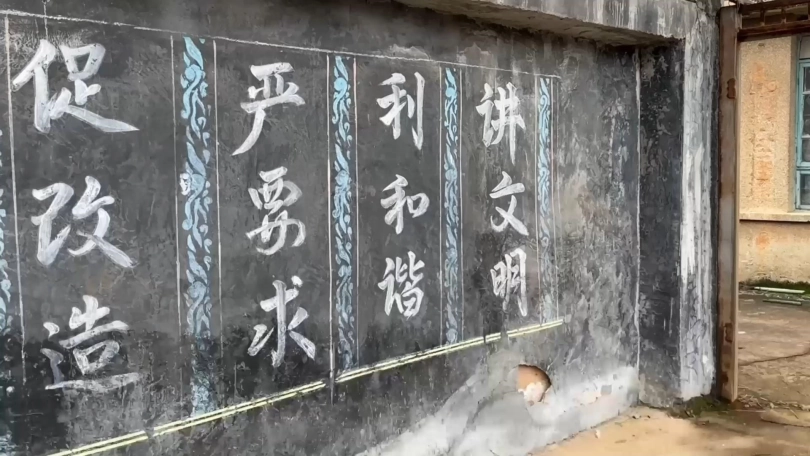 讲文明
利和谐
严要求
促改造